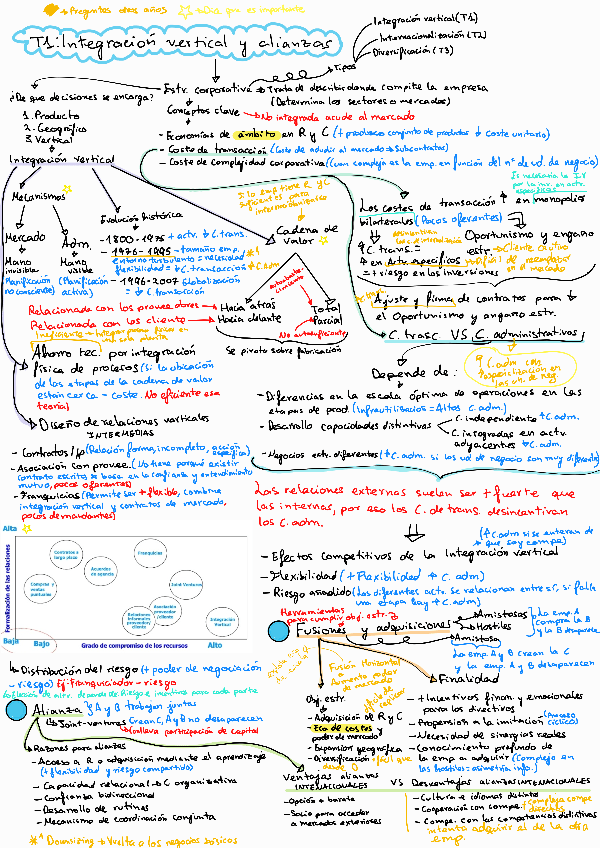 → Preguntas otros años
T1: Integración vertical y alianzas
Tipos
Integración vertical (T1)
Internacionalización (T2)
Diversificación (T3)
Estr. corporativa → Trata de describir donde compite la empresa
(Determina los sectores o mercados)
¿De que decisiones se encarga?
1. Producto
2. Geográfico
3. Vertical
Conceptos clave
No integrada acude al mercado
- Economías de ámbito en R y C (+ producco conjunto de productos ↓ coste unitario)
- Costo de transacción (Coste de acudir al mercado → Subcontratas)
- Coste de complejidad corporativa (Cuan compleja es la emp. en función del nº de ud. de negocio)
Integración vertical
Mecanismos
Mercado
Mano invisible
(Planificación no consciente)
Adm.
Mano visible
(Planificación activa)
Evolución histórica
- 1800-1975 + actv. ↓ C. trans.
- 1976-1995 - tamaño emp. *1
entorno turbulento = necesidad
flexibilidad = ↓ C. transacción ↑ C. adm
- 1996-2007 Globalización
= ↓ C. transacción
Cadena de valor
Relacionada con los proveedores → Hacia atrás
Relacionada con los cliente → Hacia delante
Total
Parcial
No autosuficiente
Se pivota sobre fabricación
Los costes de transacción ↑ en monopolios
bilaterales (Pocos oferentes)
Oportunismo y engaño
estr.
↑ C. trans. =
↑ en Actv. específicos
= + riesgo en las inversiones
Ajuste y firma de contratos para ↓
el Oportunismo y engaño estr.
C. trasc VS C. administrativos
Depende de:
- Diferencias en la escala óptima de operaciones en las
etapas de prod. (Infrautilizarlos = Altos C. adm.)
- Desarrollo capacidades distintivas
C. independiente ↑ C. adm.
C. integradas en actv. adyacentes ↓ C. adm.
- Negocios estr. diferentes (↑ C. adm. si las ud de negocio son muy diferente)
Ahorro tec. por integración
física de procesos (si la ubicación
de las etapas de la cadena de valor
están cerca - coste. No eficiente esa
teoría)
Diseño de relaciones verticales
INTERMEDIAS
- Contratos l/p (Relación forma, incompleto, acción específica)
- Asociación con provee. (No tiene porqué existir
contrato escrito, se basa en la confianza y entendimiento
mutuo, pocos oferentes)
- Franquicias (Permite ser + flexible, combina
integración vertical y contratos de mercado,
pocos demandantes)
Las relaciones externas suelen ser + fuerte que
las internas, por eso los C. de trans. desincentivan
los C. adm.
- Efectos competitivos de la Integración vertical
- Flexibilidad (+ Flexibilidad ↑ C. adm)
- Riesgo añadido (Las diferentes actv. se relacionan entre sí, si falla
una etapa hay ↑ C. adm)
Alta
Formalización de las relaciones
Baja
Contratos a largo plazo
Acuerdos de agencia
Franquicias
Compra y ventas puntuales
Joint-Ventures
Relaciones informales proveedor/cliente
Asociación proveedor/cliente
Integración Vertical
Bajo
Grado de compromiso de los recursos
Alto
↳ Distribución del riesgo (+ poder de negociación
- riesgo) Ej: Franquiciador - riesgo
Alianza
A y B trabajan juntas
Joint-ventures
Crean C, A y B no desaparecen
Conlleva participación de capital
Razones para alianzas
- Acceso a R o adquisición mediante el aprendizaje
(+ flexibilidad y riesgo compartido)
- Capacidad relacional → C organizativa
- Confianza bidireccional
- Desarrollo de rutinas
- Mecanismo de coordinación conjunta
*1 Downsizing → Vuelta a los negocios básicos
Herramientas para cumplir obj. estr.
Fusiones y adquisiciones
Amistosas
Hostiles
La emp. A compra la B y la B desaparece
Amistosa
La emp. A y B crean la C
y la emp. A y B desaparecen
Fusión Horizontal
Aumenta poder de mercado
Obj. estr.
- Adquisición de R y C
- Eco de costes y
poder de mercado
- Expansión geográfica
- Diversificación
Finalidad
- + Incentivos finan. y emocionales
para los directivos
- Propensión a la imitación (Proceso cíclico)
- Necesidad de sinergias reales
- Conocimiento profundo de
la emp a adquirir (Complejo en
las hostiles = asimetría info.)
Ventajas alianzas
INTERNACIONALES
- Opción + barata
- Socio para acceder
a mercados exteriores
VS
Desventajas alianzas INTERNACIONALES
- Cultura e idiomas distinto
- Cooperación con compe.
- Compe. con las competencias distintivas
intenta adquirir el de la otra
emp.